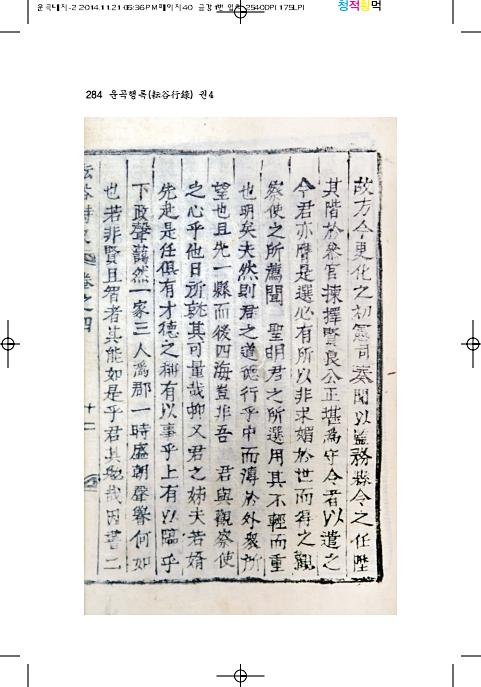 284 운곡행록(耘谷行錄) 권4
故方今更化之初憲司奏聞以監務縣令之任陞
其階於叅官揀擇賢良公正堪爲守令者以遣之
今君亦膺是選必有所以非求媚於世而得之觀
察使之所薦聞 聖明君之所選用其不輕而重
也明矣夫然則君之道德行乎中而溥於外衆所
望也且先一縣而後四海豈非吾 君與觀察使
之心乎他日所就其可量哉抑又君之姊夫若婿
先赴是任俱有才德之稱有以事乎上有以臨乎
下政聲藹然一家三人爲郡一時盛朝聲譽何如
也若非賢且智者其能如是乎君其勉哉因書二
卷之四
十二
청적황먹